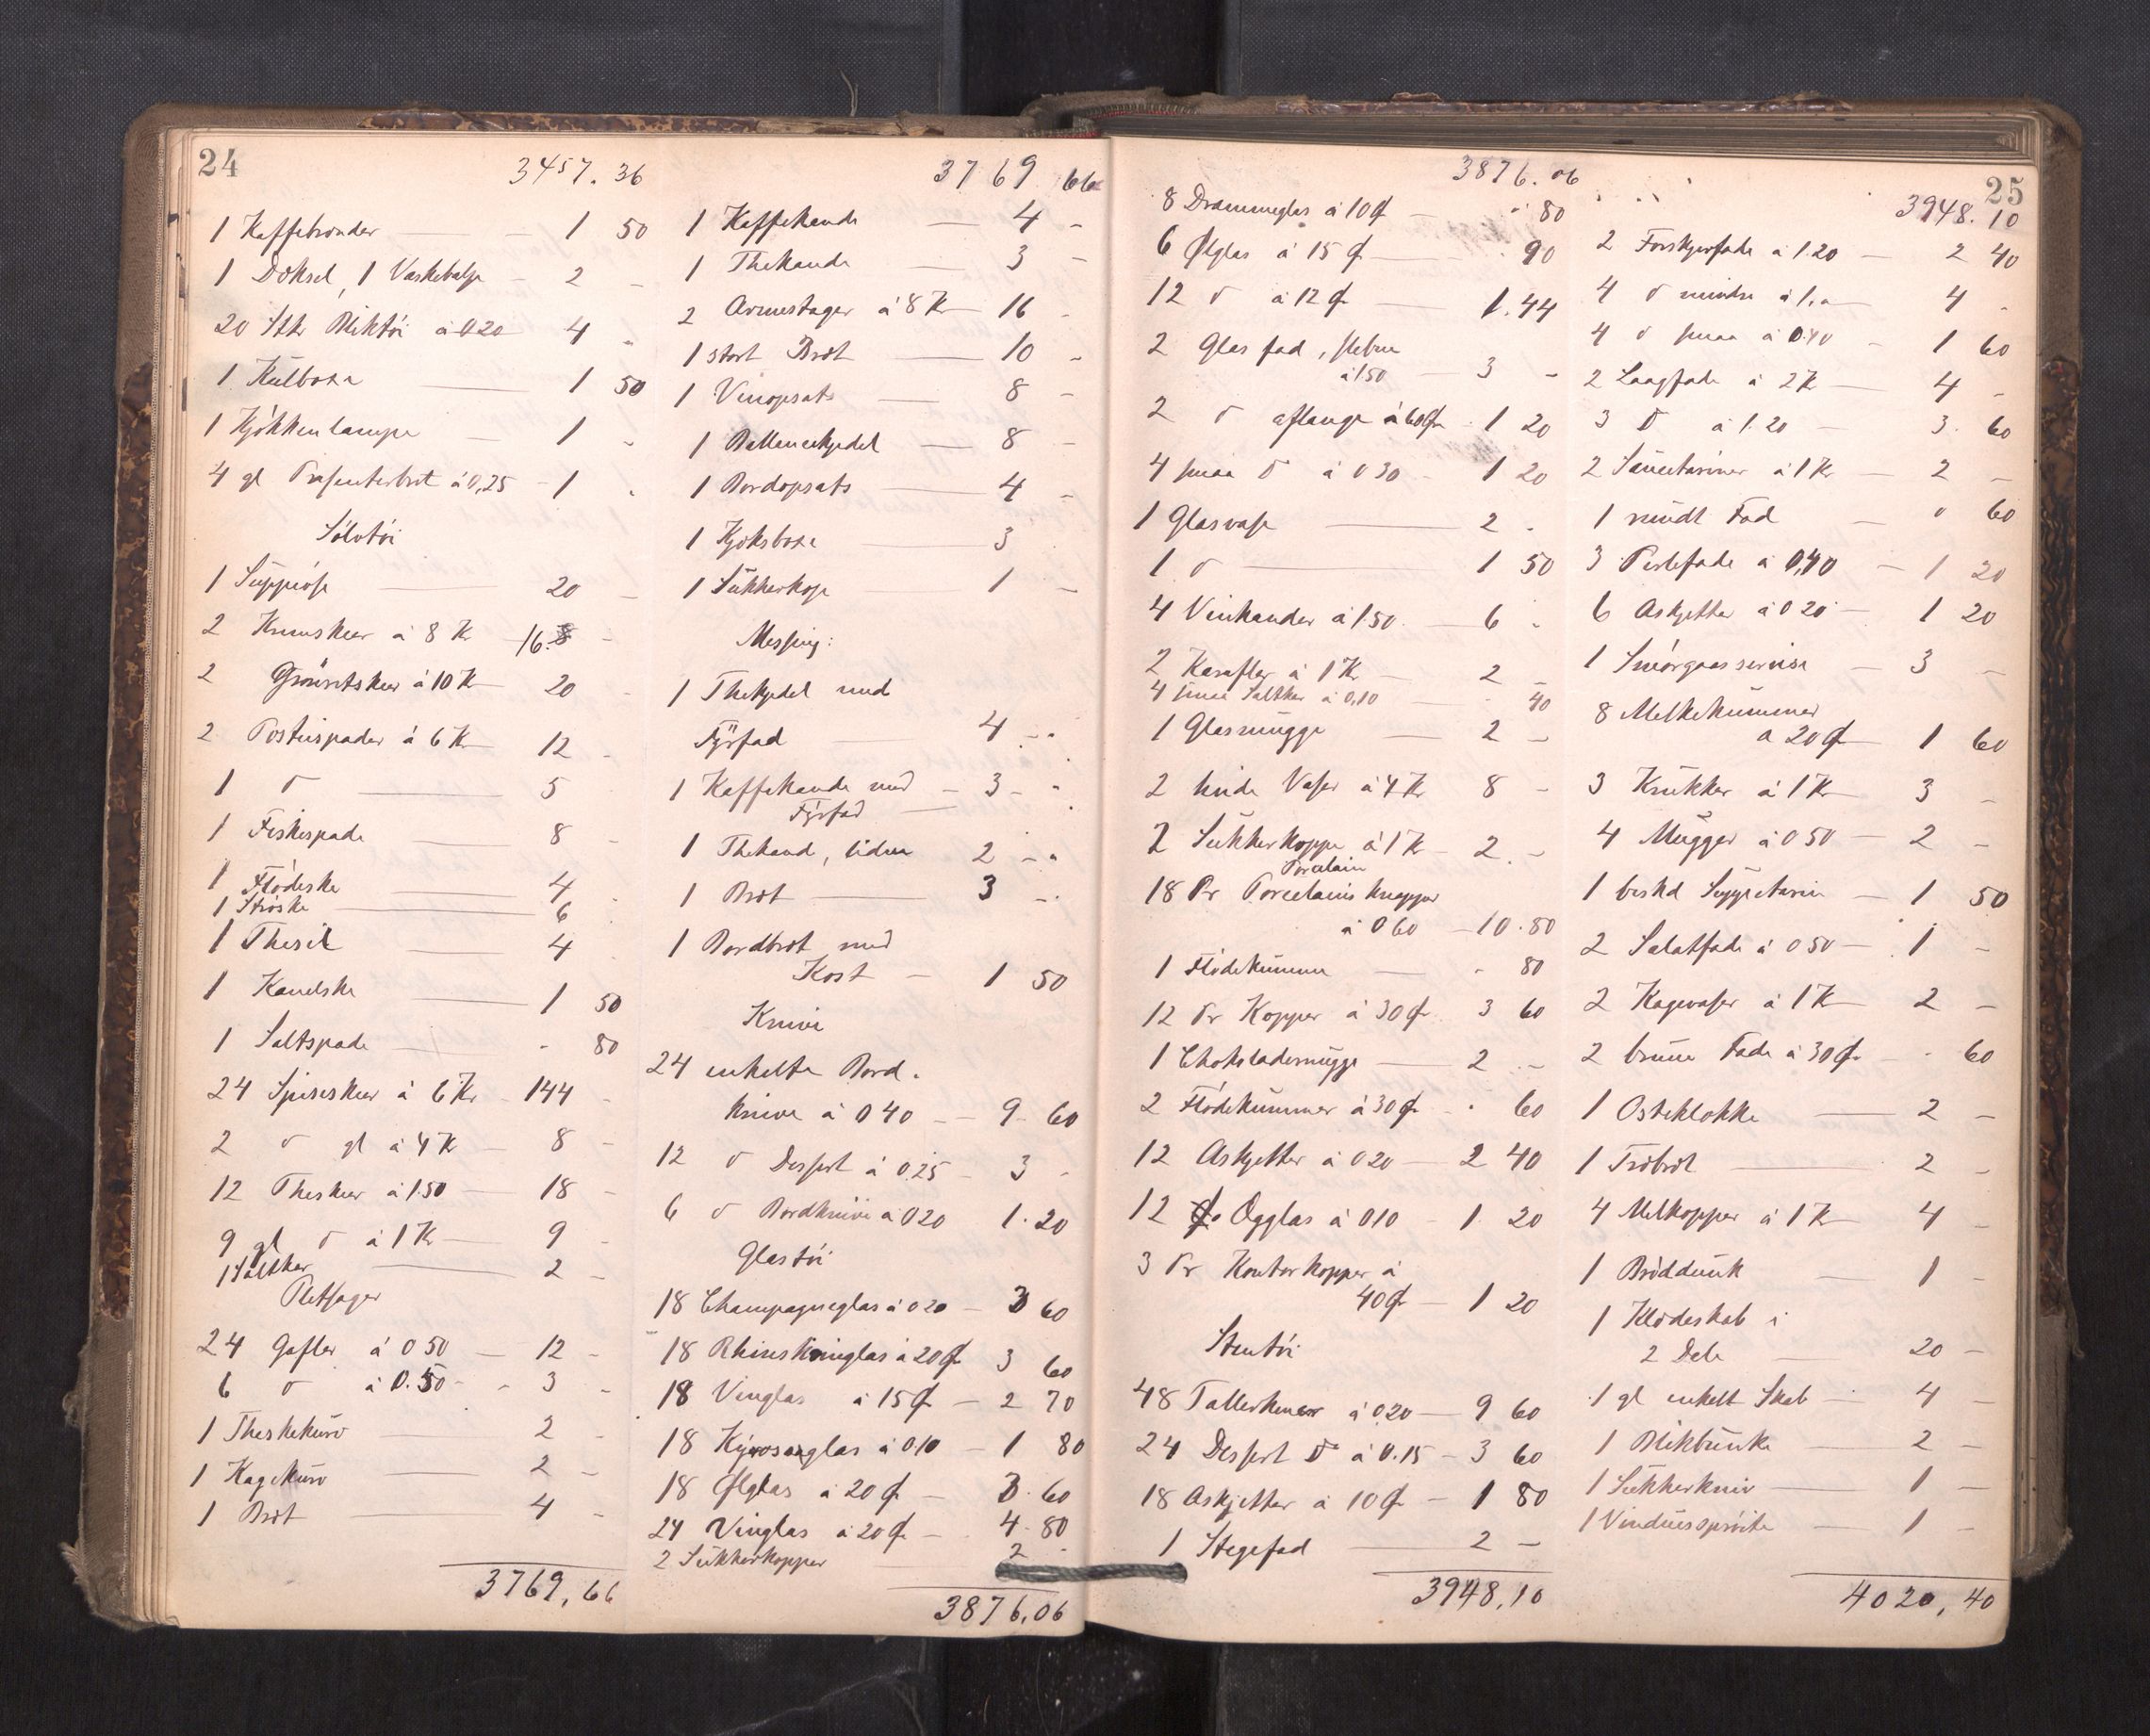 24
3457. 36
1 Kaffebrænder — 1 50
1 Döksel, 1 Vaskebalje — 2 -
20 Stk Bliktöi à 0 20 4 -
1 Külboxe — 1 50
1 Kjökkenlampe — 1 -
4 gl Præsenterbret à 0,25 - 1 -
Sölvtöi
1 Süppeöse — 20 -
2 à 8 Kr 16. -
2 Grönsetskeer à 10 K 20 -
2 Posteispader à 6 Kr 12 -
1 d — 5
1 Fiskespade — 8 -
1 Flödeske — 4 -
1 Ströske — 6 -
1 Thesil — 4
1 Kanelske — 1 50
1 Saltspade — - 80
24 Spiseskeer à 6 Kr - 144 -
2 d gl à 4 Kr 8 -
12 Theskeer à 1.50 — 18 -
9 gl d à 1 Kr — 9 -
1 Saltkar — 2 -
Pletsager
24 Gafler à 0 50 — 12 -
6 d à 0.50 - - 3 -
1 Theskekürv — 2 -
1 Kagekürv — 2 -
1 Bret — 4 -
3769,66
3769 66
1 Kaffekande — 4 -
1 Thekande — 3 -
2 Armestager à 8 Kr — 16 -
1 stort Bret — 10 -
1 Vinopsats — 8 -
1 Ballancekjedel — 8 -
1 Bordopsats — 4 -
1 Kjeksboxe — 3
1 Sükkerkop — 1 -
Messing:
1 Thekjedel med
Fÿrfad — 4 -
1 Kaffekande med — 3 -
Fÿrfad —
1 Thekand, liden 2 -
1 Bret — 3 -
1 Bordbret med
Kost — 1 50
Knive
24 enkelte Bord-
knive à 0 40 — 9 60
12 d Dessert à 0.25 - 3 -
6 d Bordknive à 0 20 1. 20
Glastöi
18 Champagneglas à 0 20 — 3 60
18 Rhinskvinglas à 20 Ø 3 60
18 Vinglas à 15 Ø — 2 70
18 à 0.10 — 1 80
18 Ølglas à 20 Ø — 3. 60
24 Vinglas à 20 Ø — 4. 80
2 Sükkerkopper — 2 -
3876,06
25
3876. 06
8 Drammeglas à 10 Ø — - 80
6 Ølglas à 15 Ø — 90
12 d à 12 Ø — 1.44
2 Glas fad, slebne
à 1.50 — 3 -
2 d aflange à 60 Ø - 1 20
4 smaa d à 0 30 - 1 20
1 Glasvase — 2 -
1 d — 1 50
4 Vinkander à 1.50 - 6 -
2 Karafler à 1 Kr — 2 -
4 smaa Saltkar à 0,10 — 40
1 Glasmügge — 2 -
2 hvide Vaser à 4 Kr 8 -
2 Sükkerkoppe à 1 Kr - 2. -
Porcelain
18 Pr Porcelains
à 0 60 — 10.80
1 Flödekümme — - 80
12 Pr Kopper à 30 Ø 3 60
1 Chokolademügge — 2 -
2 Flödekümmer à 30 Ø - 60
12 Askjetter à 0 20 — 2 40
12 Ægglas à 0 10 - 1 20
3 Pr Kontorkopper à
40 Ø — 1 20
Stentöi
48 Tallerkener à 0.20 — 9 60
24 Dessert D à 0.15 - 3 60
18 Askjetter à 10 Ø — 1 80
1 Stegefad — 2 -
3948,10
3948. 10
2 Forskjerfade à 1.20 — 2 40
4 d mindre à 1,- — 4 -
4 d smaa à 0.40 - 1 60
2 Laagfade à 2 K — 4 -
3 D à 1.20 — 3. 60
2 Saucetariner à 1 Kr — 2 -
1 rundt Fad — 0 60
3 Perlefade à 0,40 - 1 20
6 Askjetter à 0 20 - 1 20
1 Smörgaasservise — 3 -
8 Melkekümmer
à 20 Ø — 1 60
3 Krükker à 1 K — 3 -
4 Mügger à 0 50 — 2 -
1 beskd Süppetarin — 1 50
2 Salatfade à 0 50 — 1 -
2 Kagevaser à 1 K — 2 -
2 brüne Fade à 30 Ø — - 60
1 Osteklokke — 2 -
1 Tröbret — 2 -
4 Melkopper à 1 K — 4 -
1 Bröddunk — 1 -
1 Klædeskab i
2 Dele — 20 -
1 gl enkelt Skab — 4 -
1 Blikbünke — 2 -
1 Sükkerkniv — 1 -
1 Vindüesspröite — 1 -
4020,40